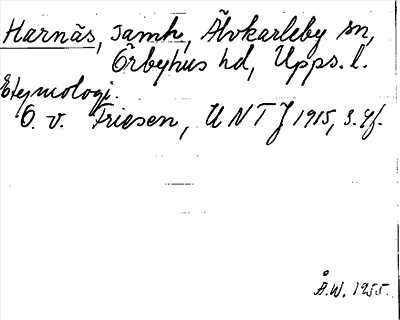 Harnäs, samh, Älvkarleby sn,
Örbyhus hd, Upps. l.
Etymologi.
O. v. Friesen, UNTJ 1915, s. 4f.
Å.W. 1955.